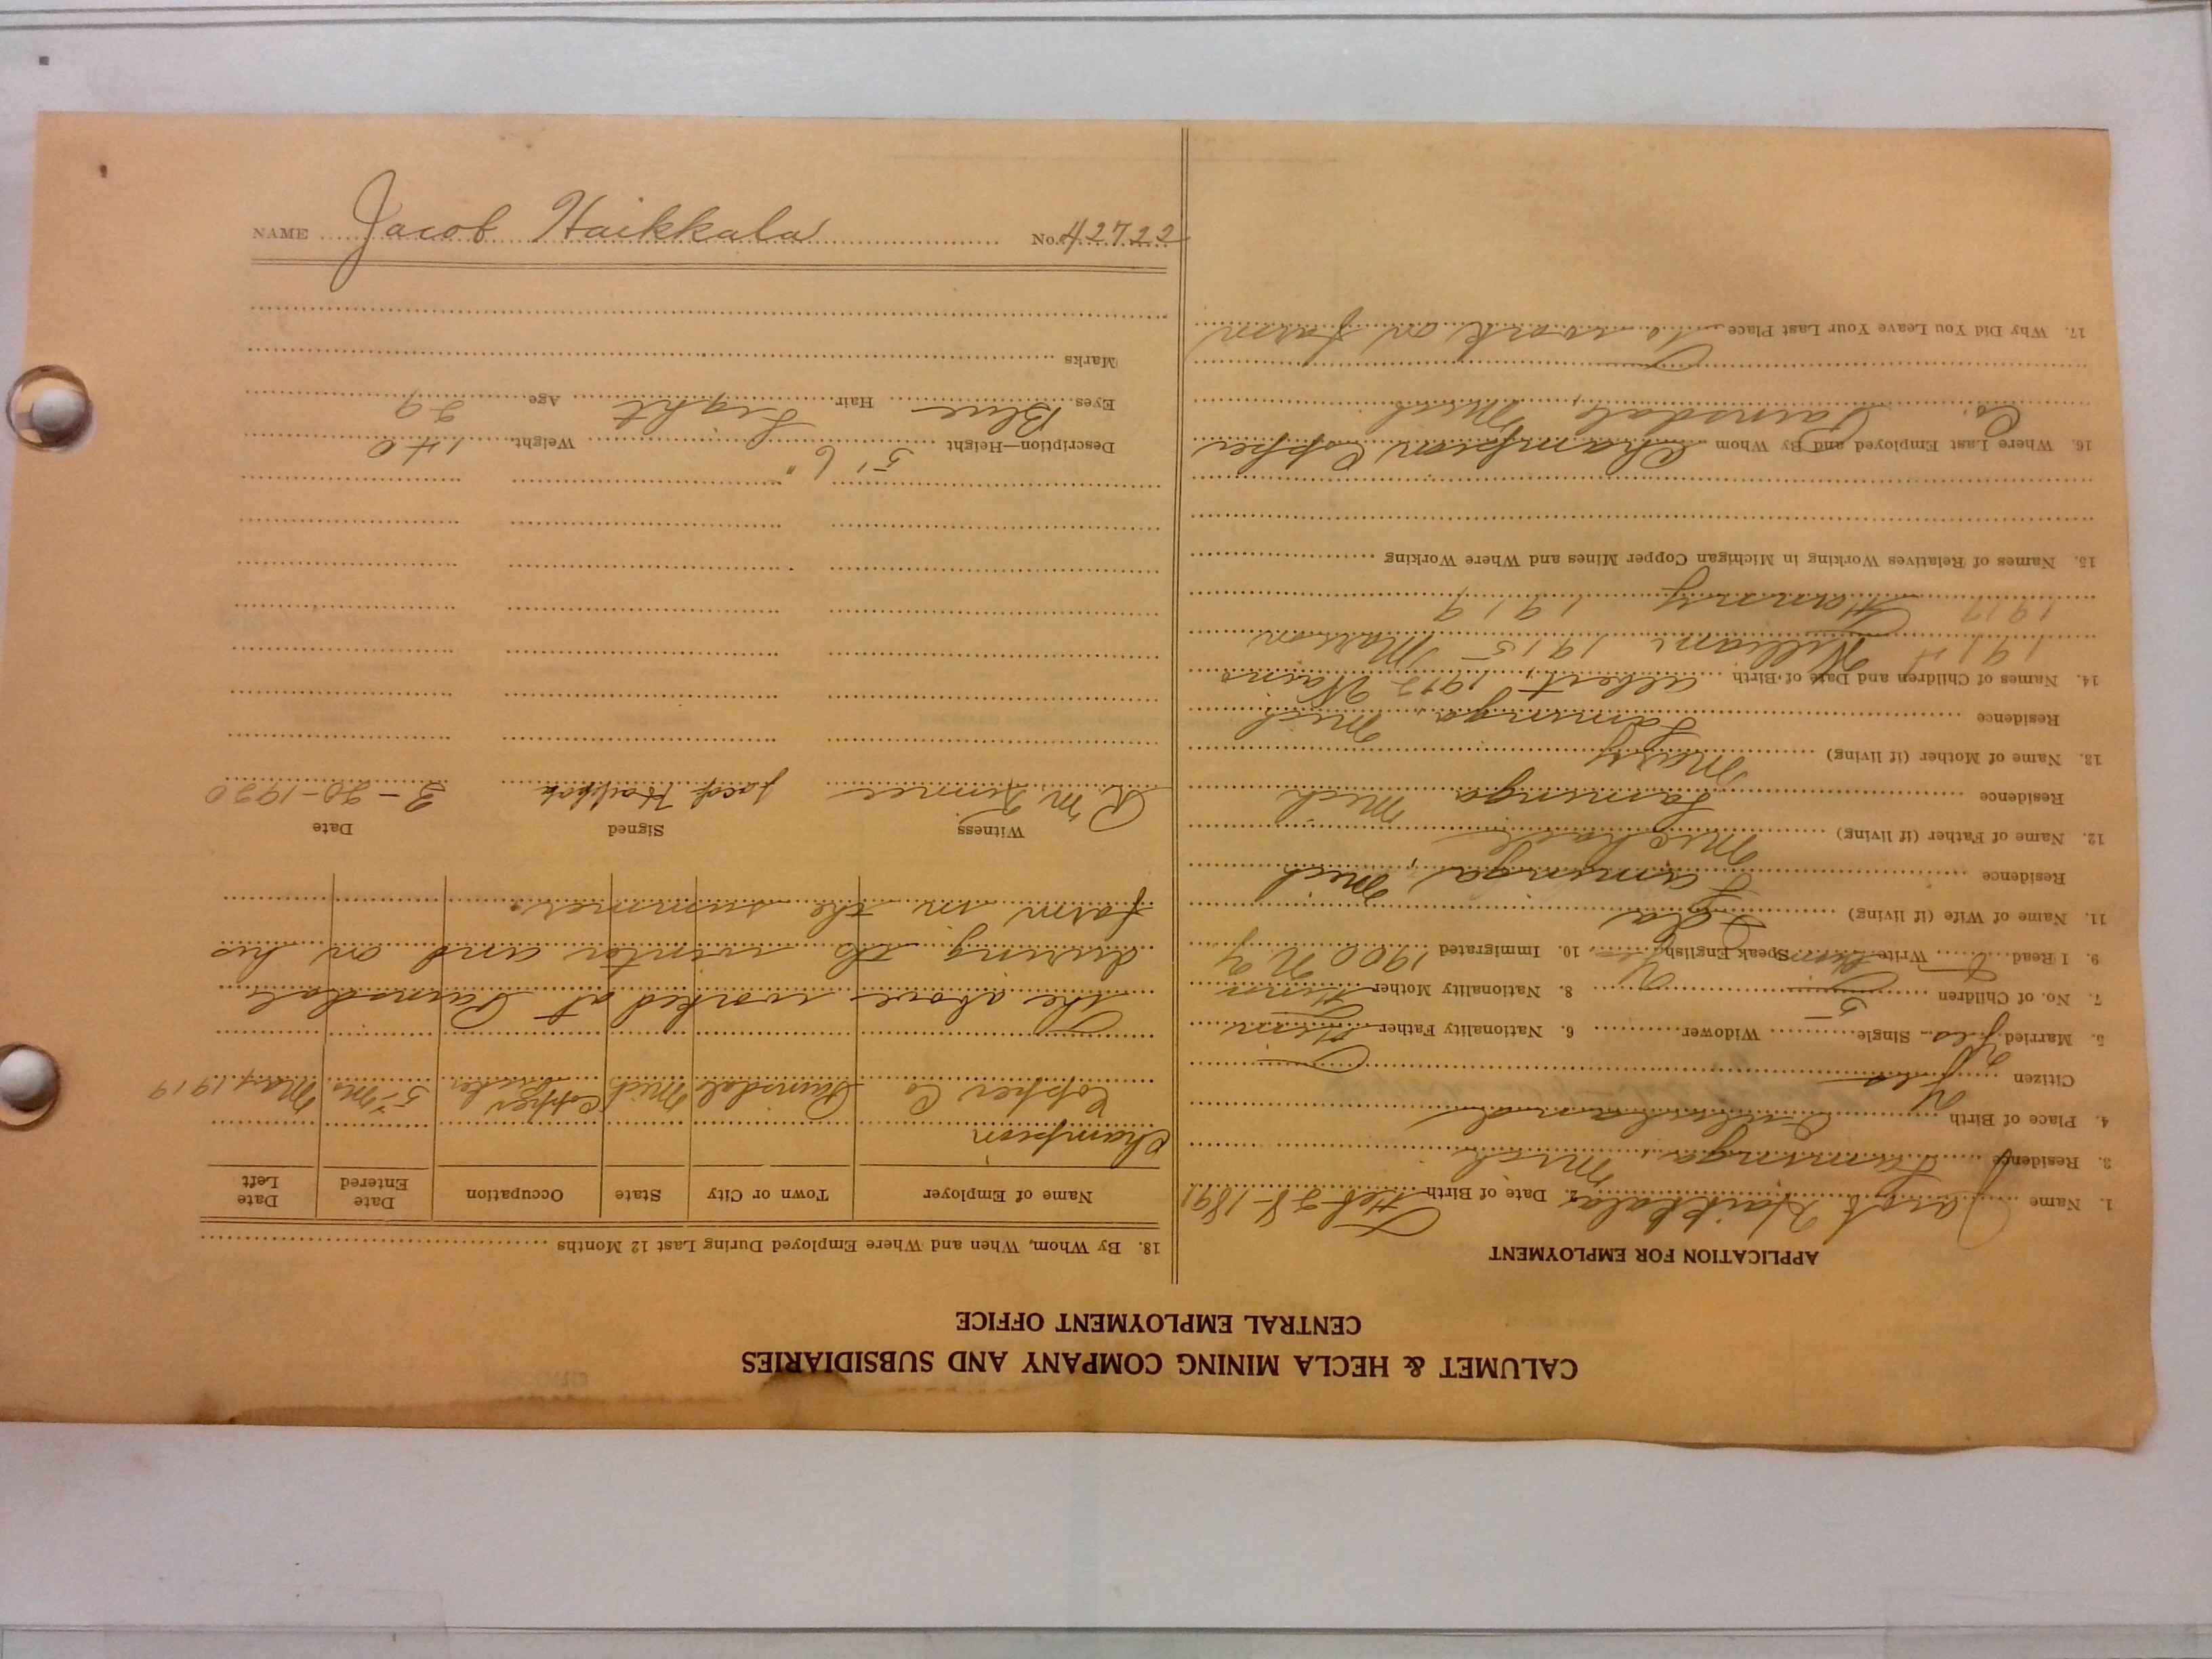 CALUMET & HECLA MINING COMPANY AND SUBSIDIARIES
CENTRAL EMPLOYMENT OFFICE
APPLICATION FOR EMPLOYMENT
1. Name Jacob Haikkala 2. Date of Birth Feb 28-1891
3. Residence Laminga, Mich
4. Place of Birth
Citizen Yes
5. Married Yes Single Widower 6. Nationality Father
7. No. of Children 5 8. Nationality Mother Finn
9. I Read Write Speak English 10. Immigrated 1900 N Y
11. Name of Wife (if living) Ida
Residence Laminga, Mich
12. Name of Father (if living) Michael
Residence Laminga Mich
13. Name of Mother (if living) Mary
Residence Laminga, Mich
14. Names of Children and Date of Birth Albert, 1912 Waino
1914 William 1915 Matson
1917 1919
15. Names of Relatives Working in Michigan Copper Mines and Where Working
16. Where Last Employed and By Whom Champion Copper
Co. Painsdale, Mich
17. Why Did You Leave Your Last Place to work on farm
18. By Whom, When and Where Employed During Last 12 Months
Name of Employer Town or City State Occupation Date Entered Date Left
Champion
Copper Co Painsdal Mich Copper 5 Ms May 1919
The above worked at Painsdale
during the winter and on his
farm in the summer.
Witness Signed Date
R. M. Jacob 3-20-1920
Description—Height 5' 6" Weight 140
Eyes Blue Hair Light Age 29
Marks
NAME Jacob Haikkala No. 42722